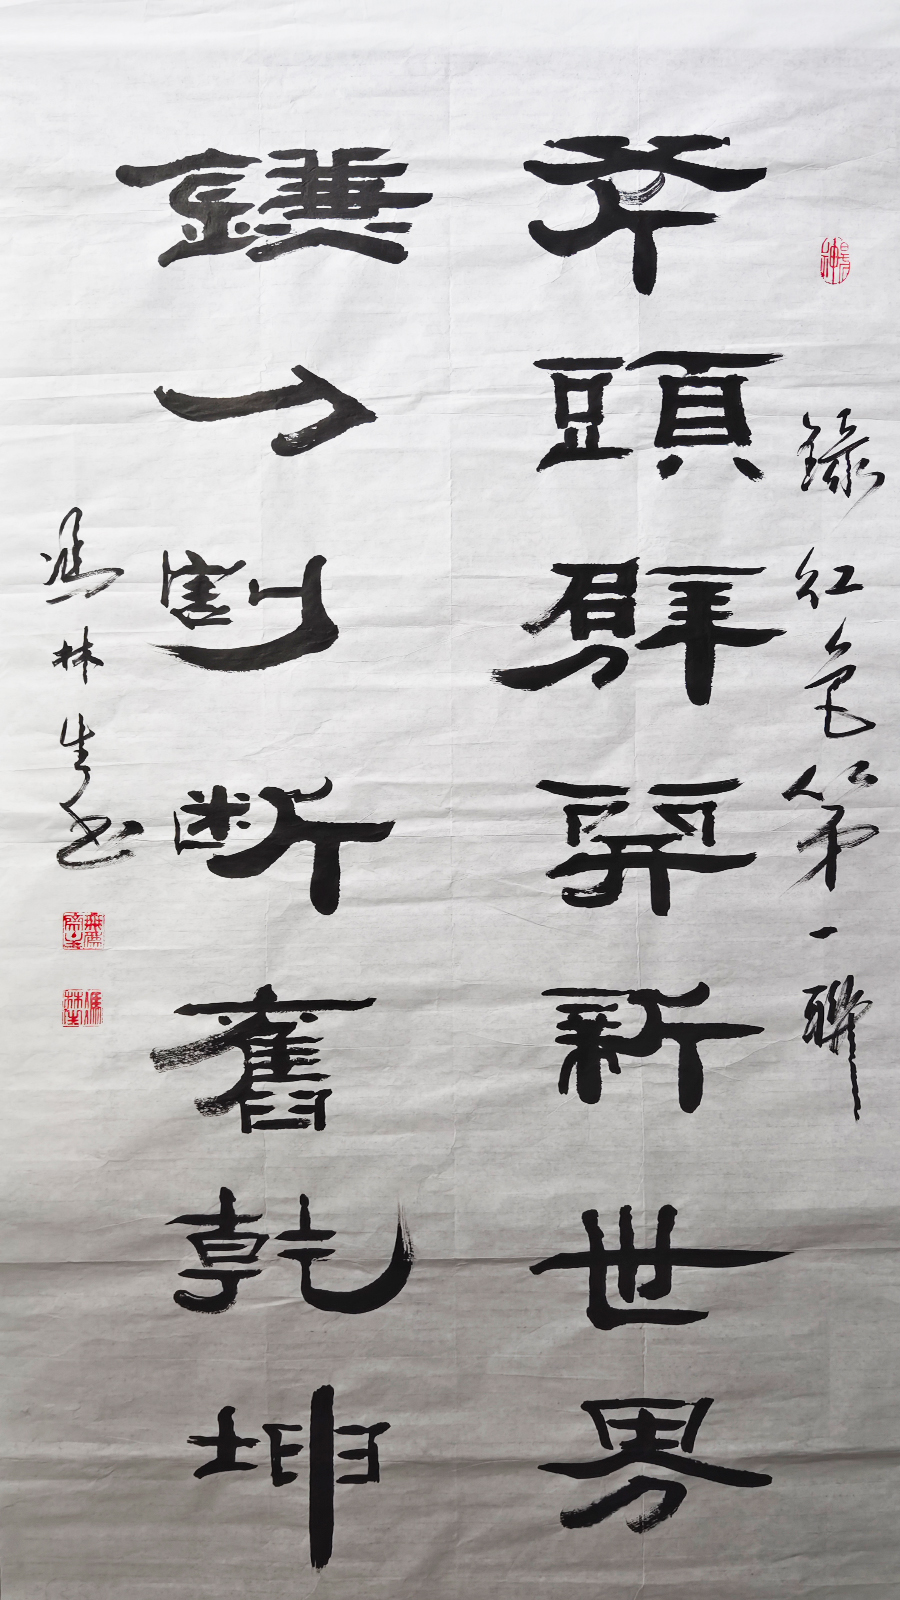 錄紅色第一聯
斧頭劈開新世界
鐮刀割斷舊乾坤
馮林生書
馮林生